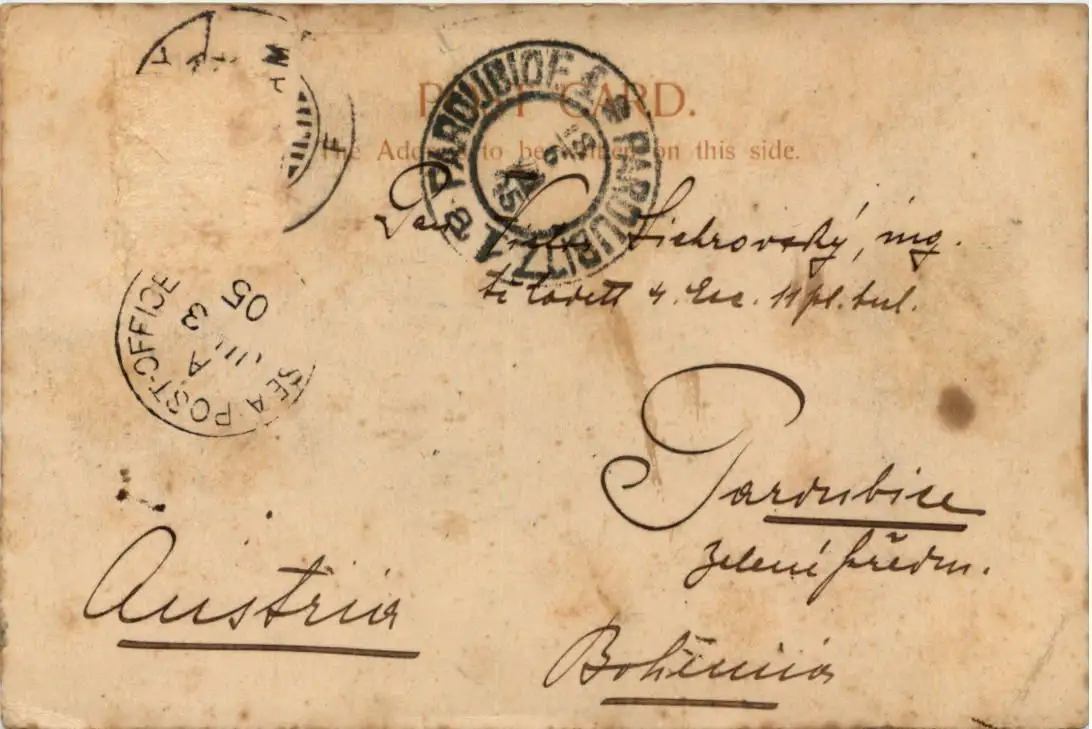 POST CARD.
The Address to be written on this side.
PARDUBICE 1 PARDUBITZ 1
25
SEA POST-OFFICE
A
3
05
Pan Lichrovský, ing.
4. Esc. 11 pl. hul.
Pardubice
Zelené předm.
Austria
Bohemia